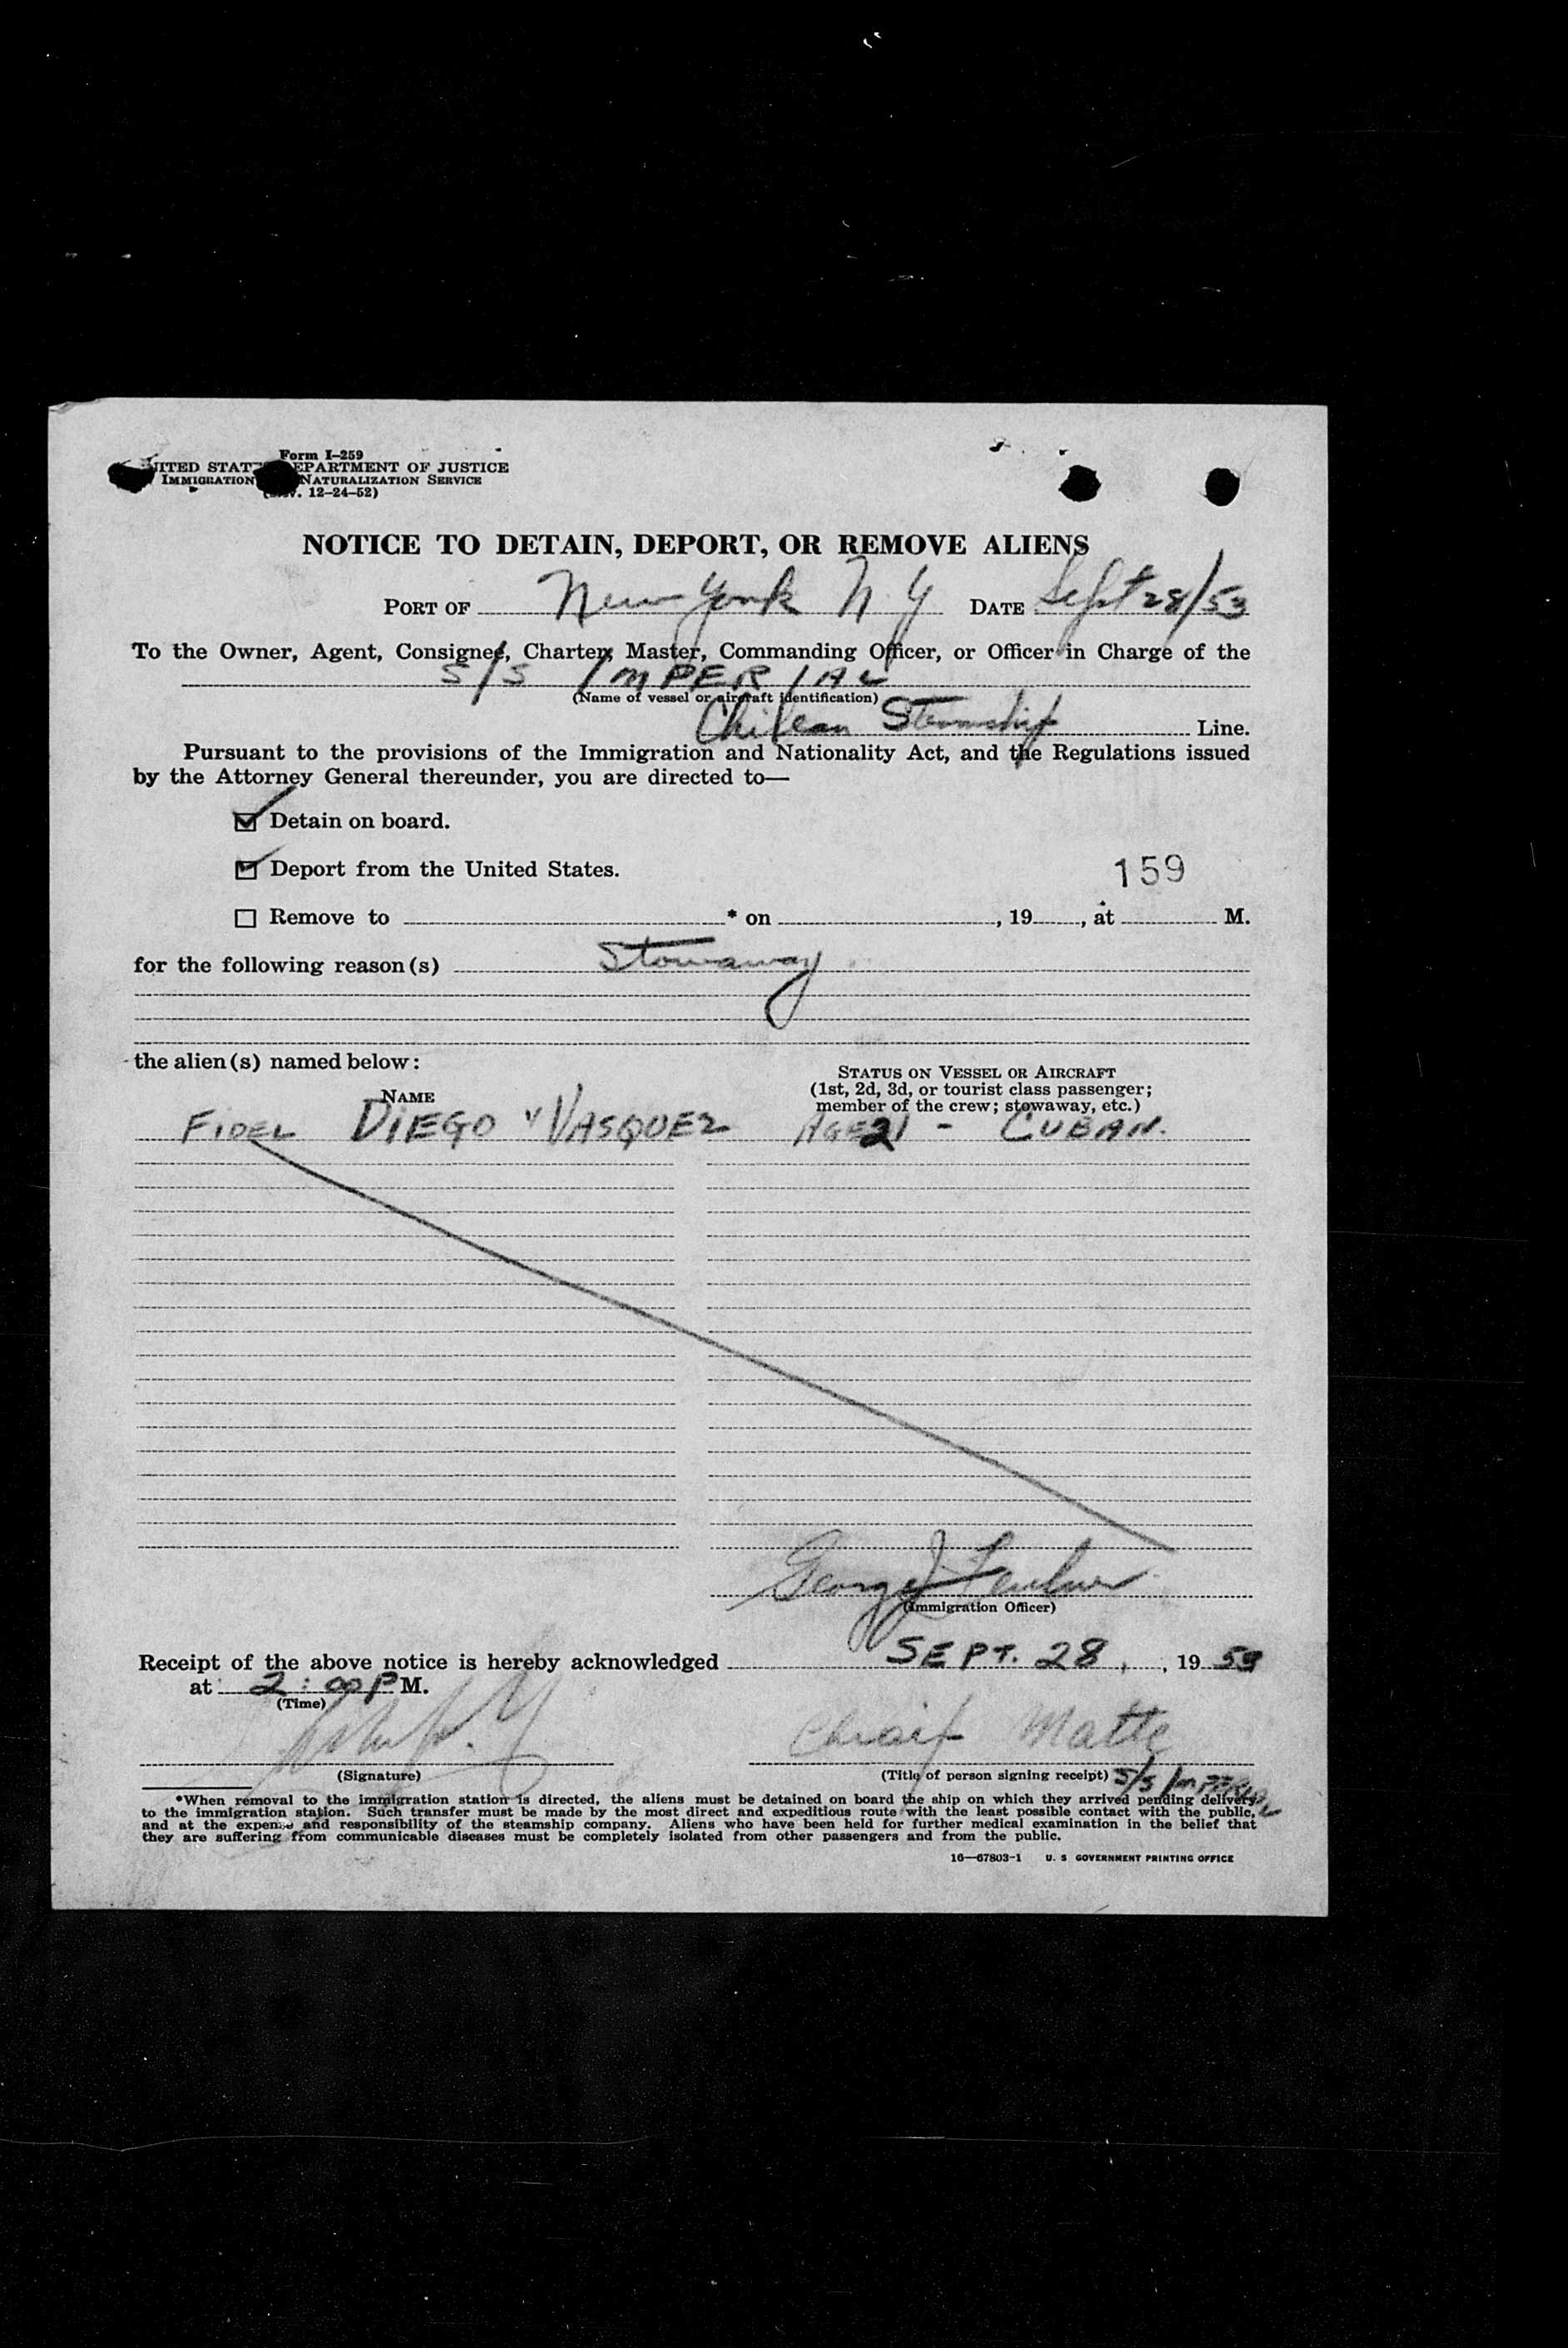 Form I-259
UNITED STATES DEPARTMENT OF JUSTICE
IMMIGRATION NATURALIZATION SERVICE
12-24-52)
NOTICE TO DETAIN, DEPORT, OR REMOVE ALIENS
PORT OF New York N.Y DATE Sept 28/53
To the Owner, Agent, Consignee, Charter, Master, Commanding Officer, or Officer in Charge of the
S/S IMPERIAL
(Name of vessel or aircraft identification)
Chilean Steamship Line.
Pursuant to the provisions of the Immigration and Nationality Act, and the Regulations issued
by the Attorney General thereunder, you are directed to—
Detain on board.
Deport from the United States.
159
Remove to * on , 19 , at M.
for the following reason(s) Stowaway
the alien(s) named below:
NAME
STATUS ON VESSEL OR AIRCRAFT
(1st, 2d, 3d, or tourist class passenger;
member of the crew; stowaway, etc.)
FIDEL DIEGO y VASQUEZ AGE 21 - CUBAN.
George J
(Immigration Officer)
Receipt of the above notice is hereby acknowledged SEPT. 28, , 19 53
at 2:00 P M.
(Time)
Chief Matte
(Signature)
(Title of person signing receipt) S/S IMPERIAL
*When removal to the immigration station is directed, the aliens must be detained on board the ship on which they arrived pending delivery
to the immigration station. Such transfer must be made by the most direct and expeditious route with the least possible contact with the public,
and at the expense and responsibility of the steamship company. Aliens who have been held for further medical examination in the belief that
they are suffering from communicable diseases must be completely isolated from other passengers and from the public.
16—67803-1 U. S GOVERNMENT PRINTING OFFICE